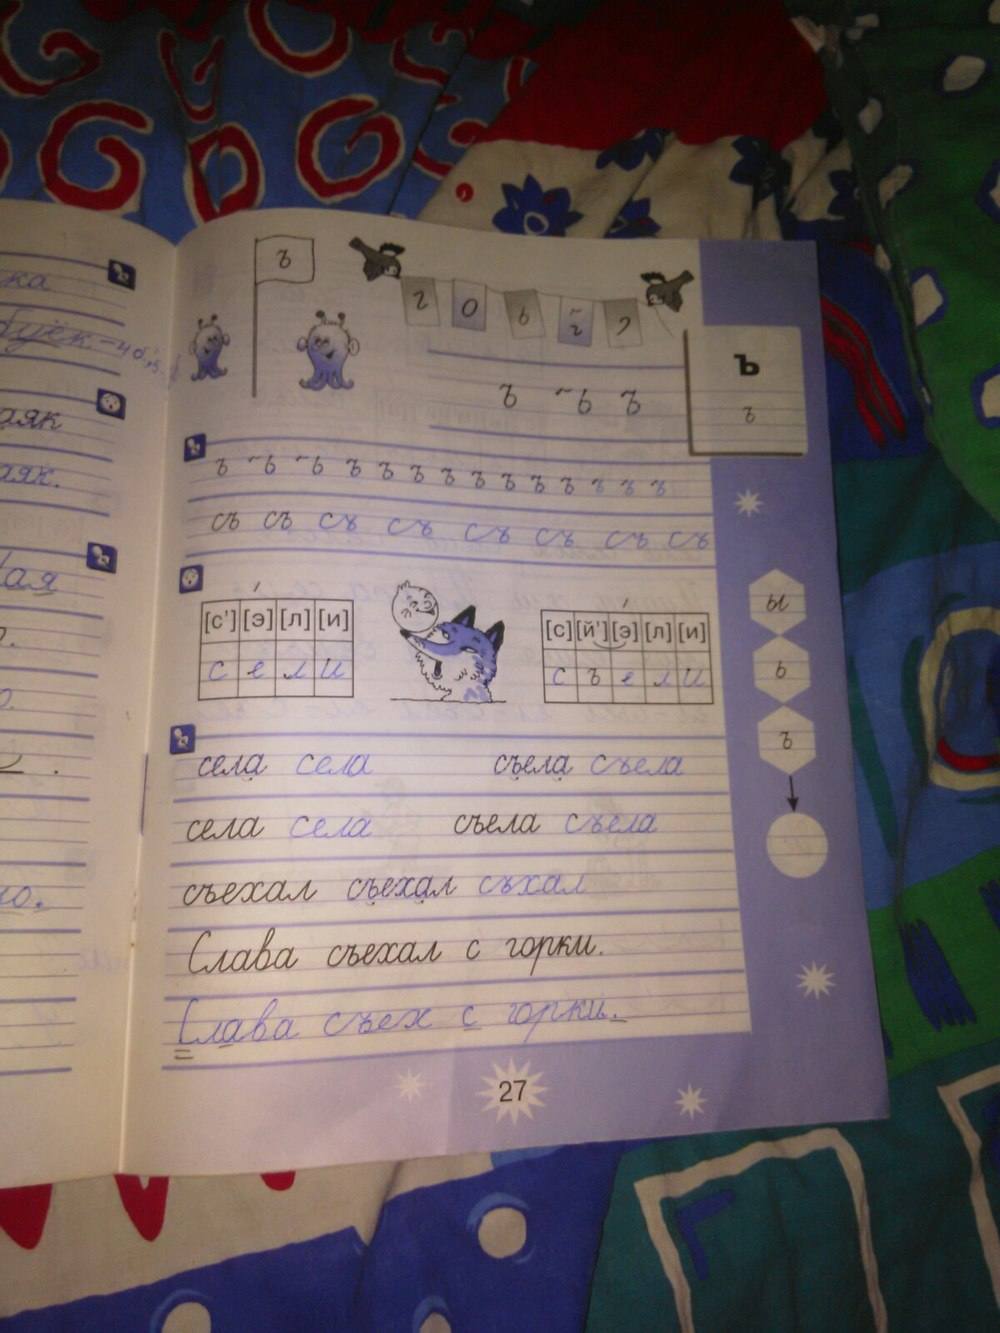 ъ
ъ
ъ
ъ ъ ъ
ъ ъ ъ ъ ъ ъ ъ ъ ъ ъ ъ ъ ъ ъ
съ съ съ съ съ съ съ съ
[с'] [э] [л] [и]
с е л и
[с] [й'] [э] [л] [и]
с ъ е л и
ы
ь
ъ
села села съела съела
села села съела съела
съехал съехал съхал
Слава съехал с горки.
Слава съех с горки.
27
ка
аяк
аяк.
ая